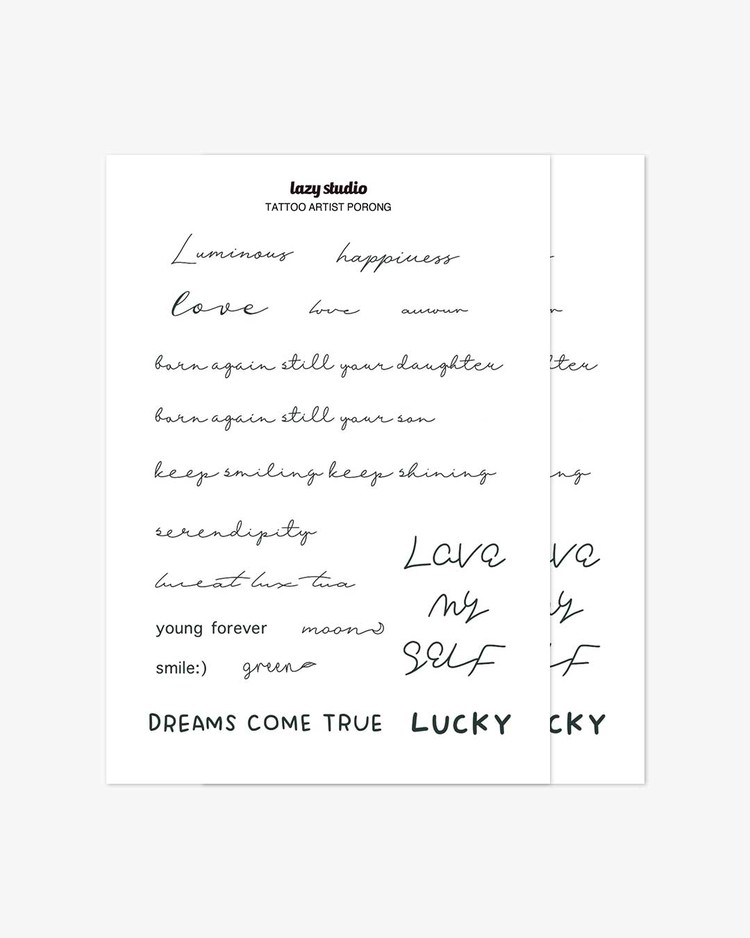 lazy studio
TATTOO ARTIST PORONG
Luminous happiness
love love
born again still your daughter
born again still your son
keep smiling keep shining
serendipity
luceat lux tua
young forever moon
smile:) green
LOVE
MY
SELF
DREAMS COME TRUE LUCKY
ter
ng
VE
Y
LF
CKY